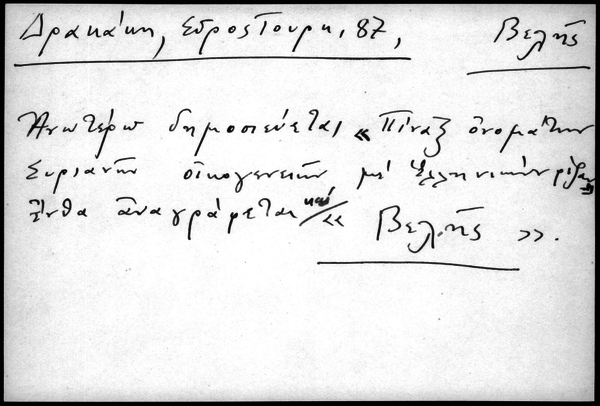 Δρακάκη, Σύρος Τουρκ., 87, Βελῆς
Ἀνωτέρω δημοσιεύεται «Πίναξ ὀνομάτων
Συριανῶν οἰκογενειῶν μέ Ἑλληνικήν ρίζαν»
Ἔνθα ἀναγράφεται καί «Βελῆς».